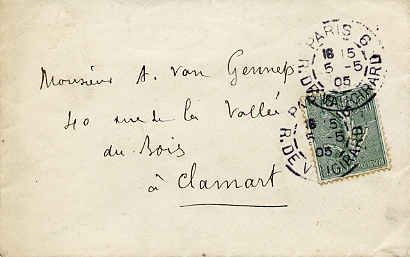 Monsieur A. van Gennep
40 rue de la Vallée
du Bois
à Clamart
PARIS 6
16 15
5 - 5
05
R. DE VAUGIRARD
PARIS
5 - 5
05
R. DE VAUGIRARD